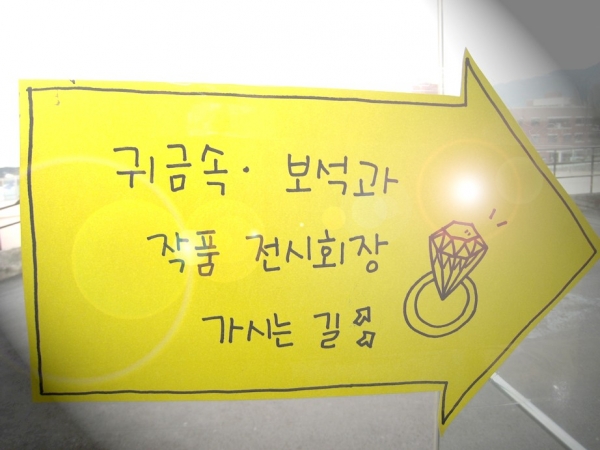 귀금속· 보석과
작품 전시회장
가시는 길